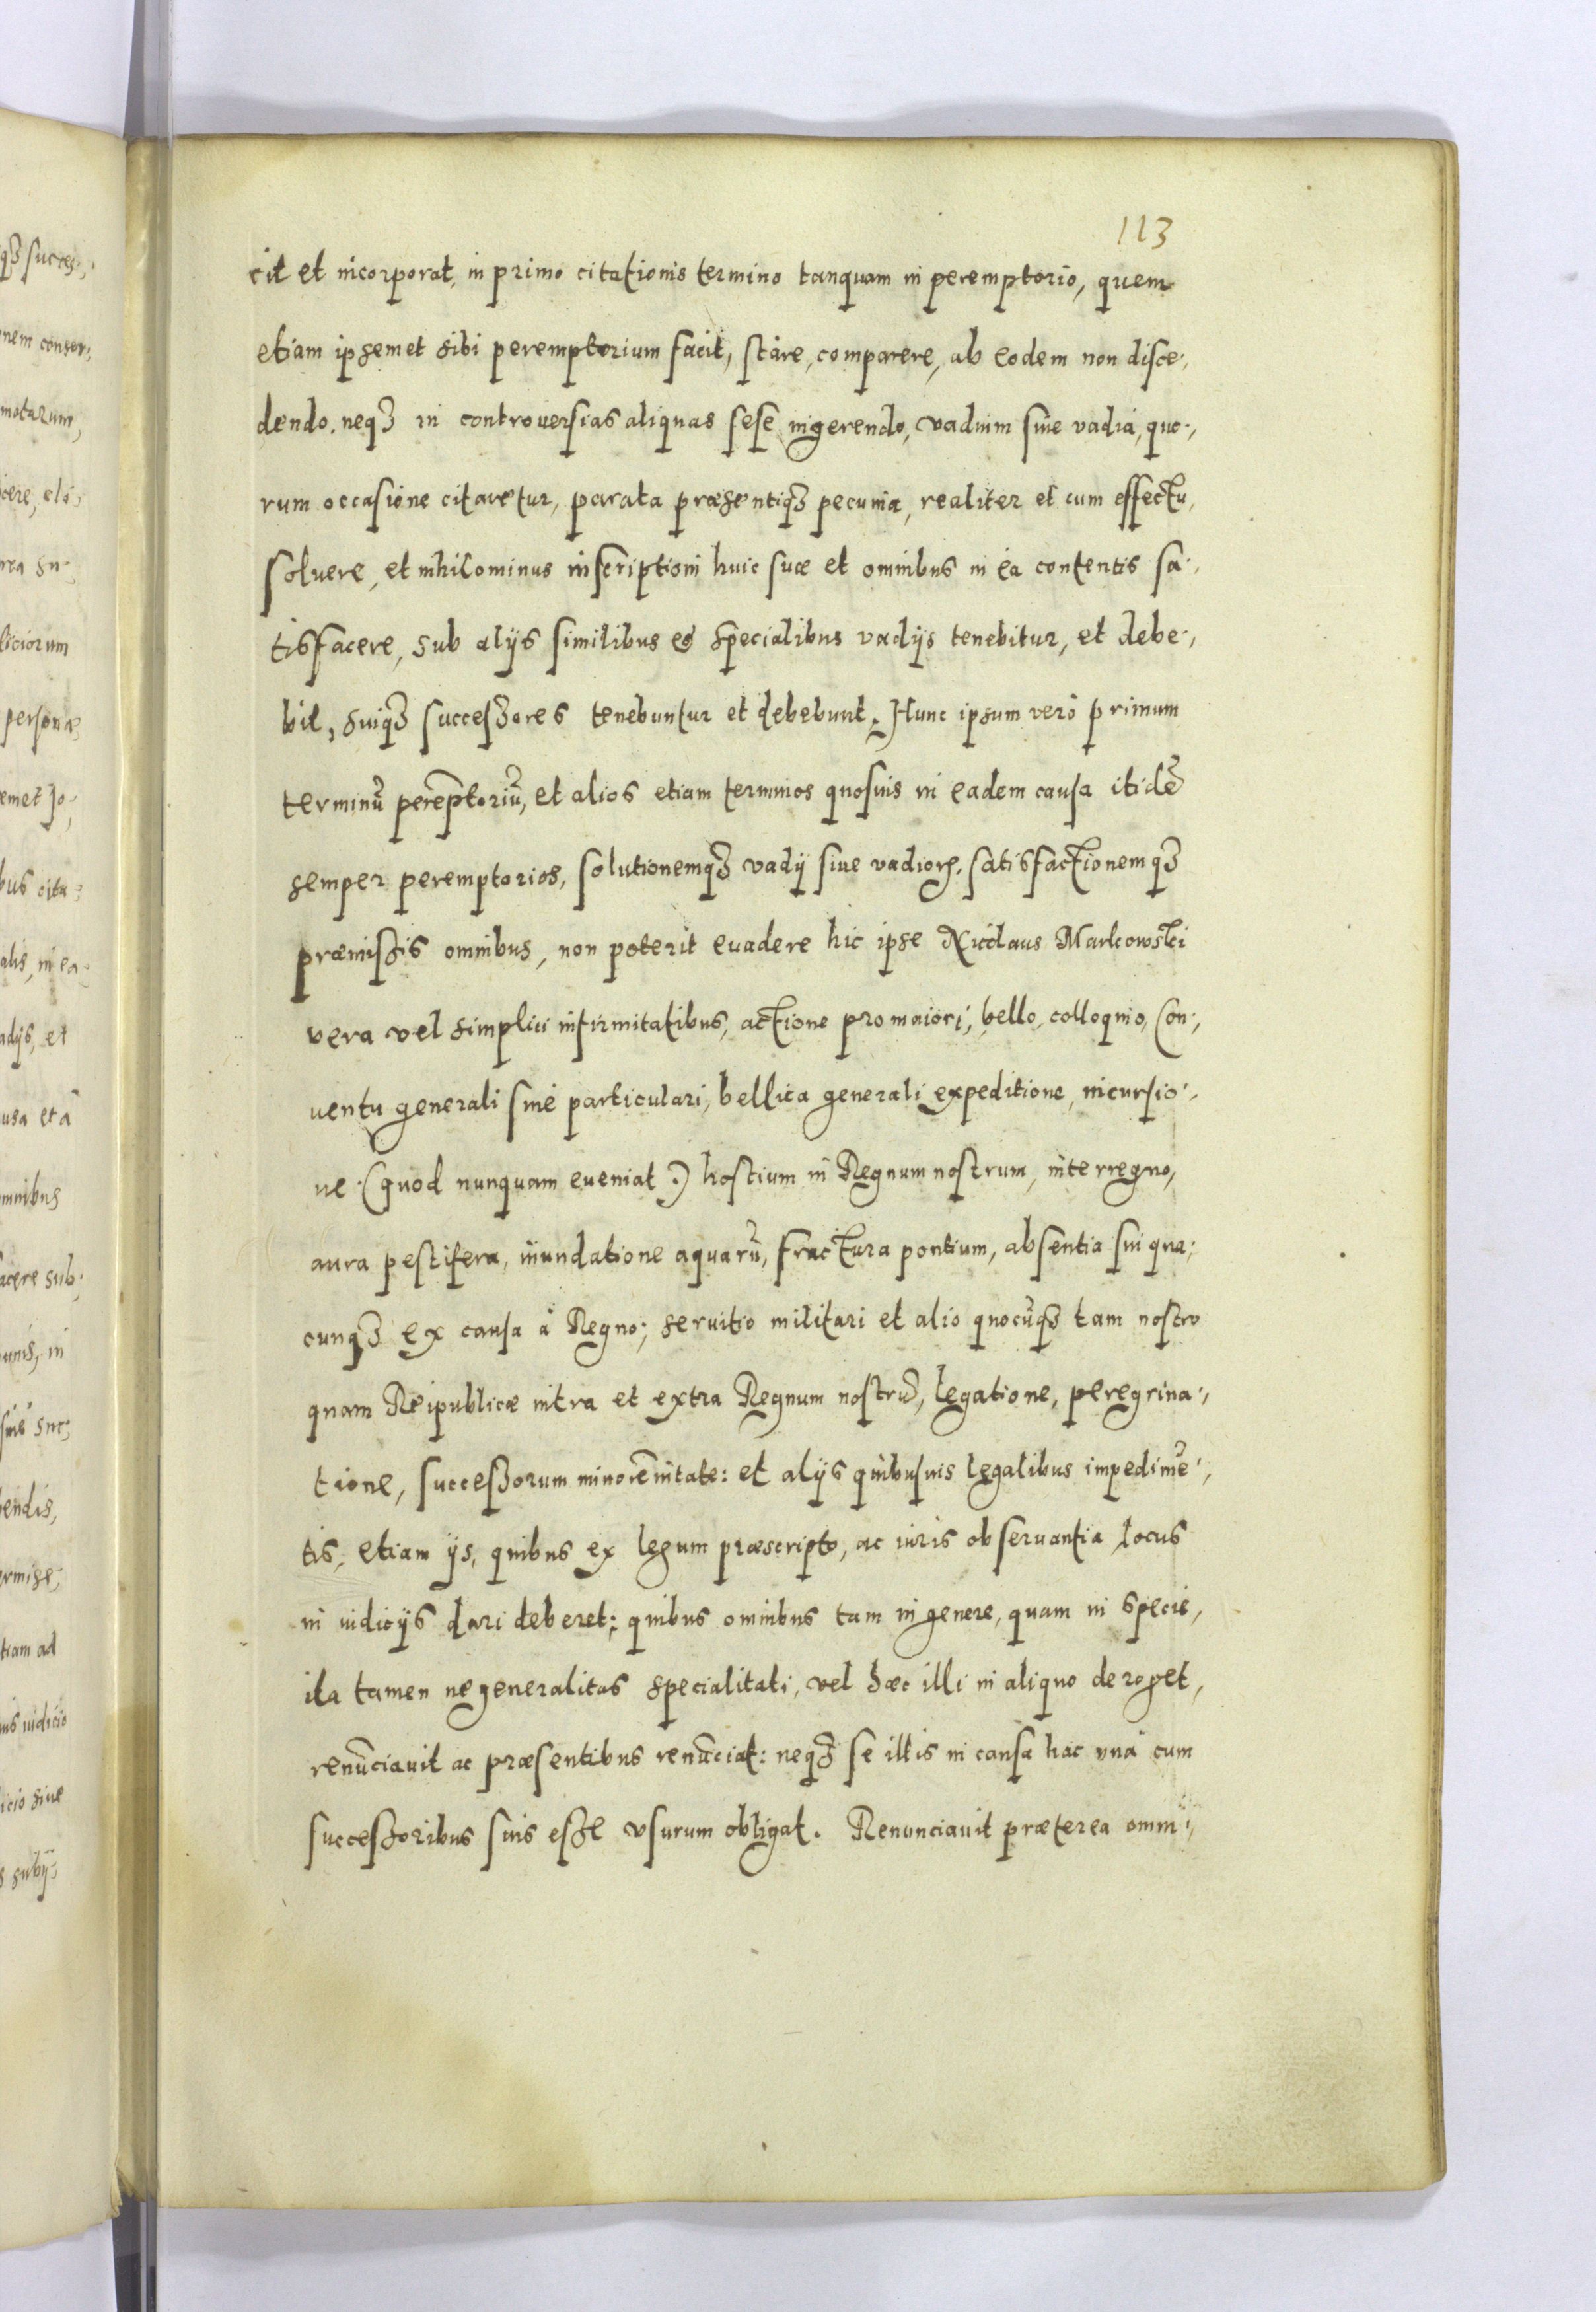 113
cit et incorporat, in primo citationis termino tanquam in peremptorio, quem
etiam ipsemet sibi peremptorium facit, stare, comparere, ab eodem non disce-,
dendo. neqꝫ in controuersias aliquas sese ingerendo, vadium siue vadia, quo-,
rum occasione citaretur, parata præsentiqꝫ pecunia, realiter et cum effectu,
soluere, et nihilominus inscriptioni huic suæ et omnibus in ea contentis sa-,
tisfacere, sub alijs similibus et specialibus vadijs tenebitur, et debe-,
bit, suiqꝫ successores tenebuntur et debebunt. Hunc ipsum verò primum
terminū perēptoriū, et alios etiam terminos quosuis in eadem causa itidē
semper peremptorios, solutionemqꝫ vadij siue vadioꝝ, satisfactionemqꝫ
præmissis omnibus, non poterit euadere hic ipse Nicolaus Markowski
vera vel simplici infirmitatibus, actione pro maiori, bello, colloquio, Con-,
uentu generali siue particulari, bellica generali expeditione, incursio-,
ne (quod nunquam eueniat) hostium in Regnum nostrum, interregno,
aura pestifera, inundatione aquarū, fractura pontium, absentia sui qua-
cunqꝫ ex causa à Regno; seruitio militari et alio quocūqꝫ tam nostro
quam Reipublicæ intra et extra Regnum nostrū, legatione, peregrina-,
tione, successorum minorēnitate: et alijs quibusuis legalibus impedimē-,
tis, etiam ijs, quibus ex legum præscripto, ac iuris obseruantia locus
in iudicijs dari deberet; quibus omnibus tam in genere, quam in specie,
ita tamen ne generalitas specialitati, vel hæc illi in aliquo deroget,
renūciauit ac præsentibus renūciat: neqꝫ se illis in causa hac unà cum
successoribus suis esse vsurum obligat. Renunciauit præterea omni-,